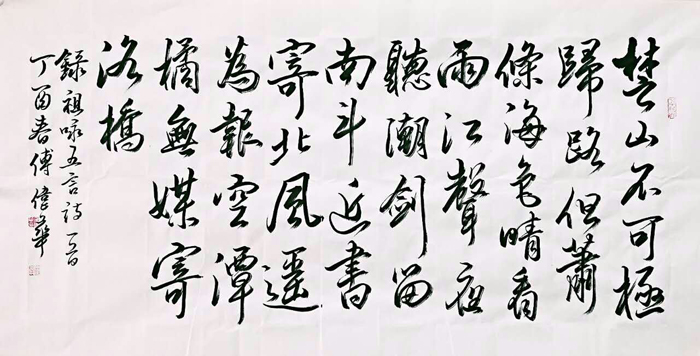 楚山不可極
歸路但蕭
條海色晴看
雨江聲夜
聽潮劍留
南斗近書
寄北風遥
為報空潭
橘無媒寄
洛橋
錄祖咏五言詩一首
丁酉春傅偉華